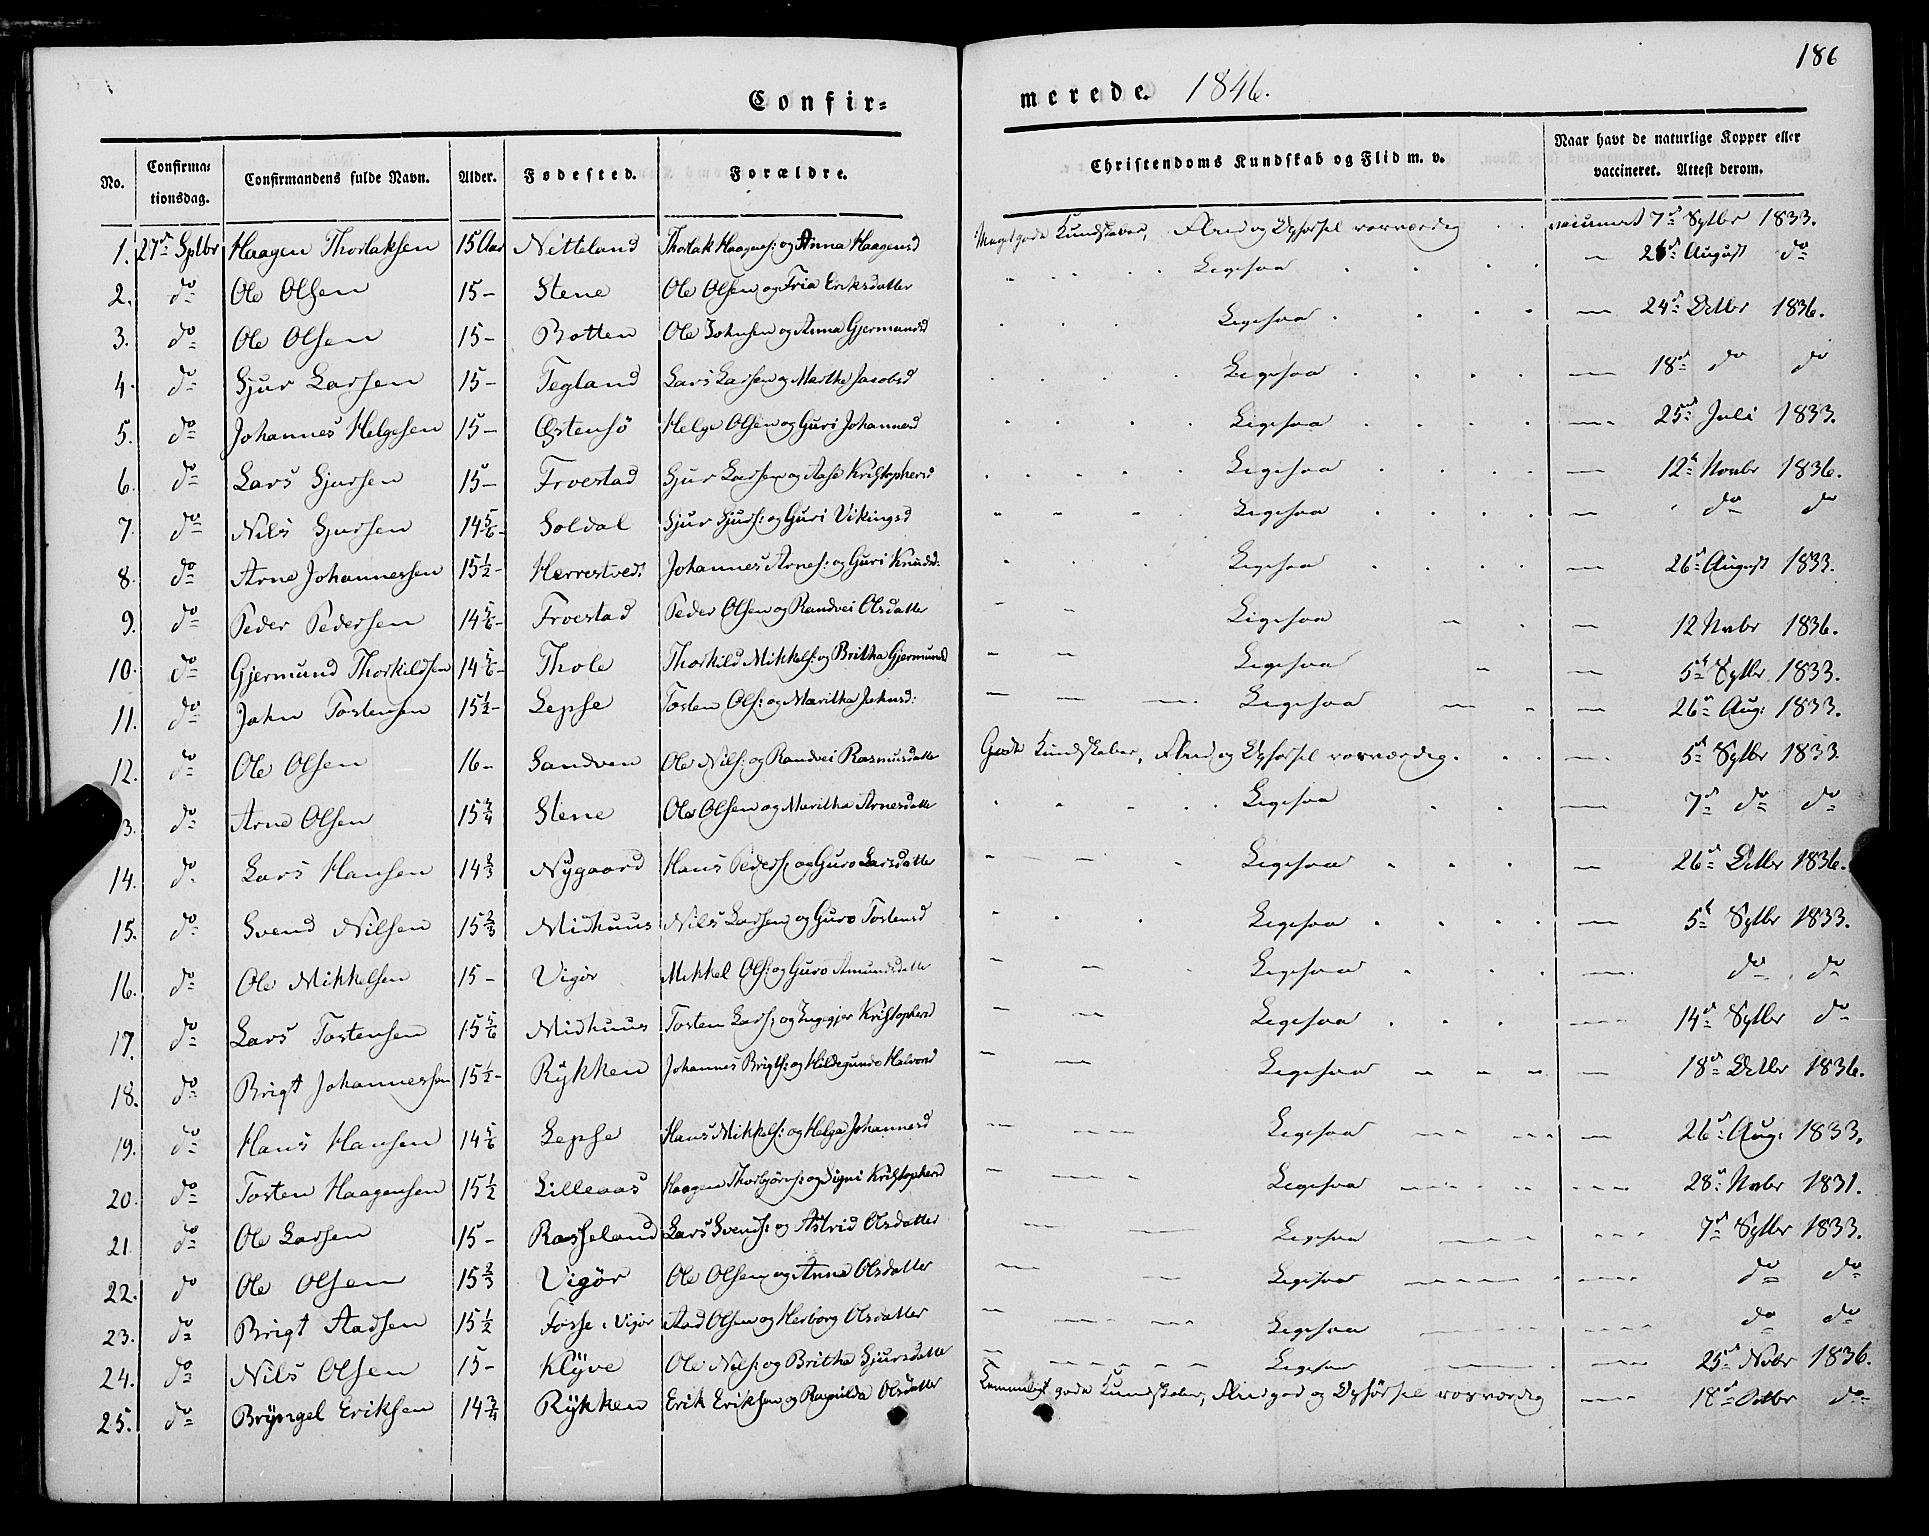 186
Confir-
merede. 1846.
No. Confirma-tionsdag. Confirmandens fulde Navn. Alder. Fødested. Forældre. Christendoms Kundskab og Flid m. v. Naar havt de naturlige Kopper eller vaccineret. Attest derom.
1. 27de Sptbr Haagen Thorlaksen 15 Aar Nitteland Thorlak Haagens: og Anna Haagensd Meget gode Kundskaber, Flid og Opførsel roesværdig vaccineret 7de Sptbr 1833.
2. do Ole Olsen 15 – Stene Ole Olsen og Fria Eriksdatter Ligesaa – 26de August do
3. do Ole Olsen 15 – Botten Ole Johnsen og Anna Gjermundsd Ligesaa – 24de Octbr 1836.
4. do Sjur Larsen 15 – Tegland Lars Larsen og Martha Jacobsd Ligesaa – 18de do do
5. do Johannes Helgesen 15 – Østensø Helge Olsen og Guri Johannesd Ligesaa – 25de Juli 1833.
6. do Lars Sjursen 15 – Froestad Sjur Larsen og Aase Kristophersd Ligesaa – 12te Novbr 1836.
7. do Nils Sjursen 14 5/6 – Soldal Sjur Sjurs: og Guri Vikingsd Ligesaa – do do
8. do Arne Johannessen 15 1/2 – Herrestvedt Johannes Arnes: og Guri Knudsd: Ligesaa – 26de August 1833.
9. do Peder Pedersen 14 5/6 – Froestad Peder Olsen og Randvei Olsdatter Ligesaa – 12 Nvbr 1836.
10. do Gjermund Thorkildsen 14 5/6 – Thole Thorkild Mikkels: og Britha Gjermundsd Ligesaa – 5te Sptbr. 1833.
11. do John Tostensen 15 1/2 – Lepse Tosten Ols: og Maritha Johnsd: Ligesaa – 26de Aug: 1833.
12. do Ole Olsen 16 – Sandven Ole Nils: og Randvei Rasmusdatter Gode Kundskaber, Flid og Opførsel roesværdig. – 5te Sptbr 1833
13. do Arne Olsen 15 3/4 Stene Ole Olsen og Maritha Arnesdatter Ligesaa – 7de do do
14. do Lars Hansen 14 2/3 Nygaard Hans Peders: og Guro Larsdatter Ligesaa – 26de Octbr 1836.
15. do Svend Nilsen 15 2/3 Midhuus Nils Larsen og Guro Tostensd Ligesaa – 5te Sptbr 1833.
16. do Ole Mikkelsen 15 – Vigør Mikkel Ols: og Guro Amundsdatter Ligesaa – do do
17. do Lars Tostensen 15 5/6 Midhuus Tosten Lars: og Ingegjer Kristophersd Ligesaa – 14de Sptbr do
18. do Brigt Johannessen 15 1/2 – Rykken Johannes Brigts: og Hildegunde Halvorsd Ligesaa – 18de Octbr 1836.
19. do Hans Hansen 14 5/6 Lepse Hans Mikkels: og Helga Johannesd Ligesaa – 26de Aug: 1833.
20. do Tosten Haagensen 15 1/2 Lilleaas Haagen Thorbjørns: og Signi Kristophersd Ligesaa – 28de Nvbr 1831.
21 do Ole Larsen 15 – Rosseland Lars Svends: og Astrid Olsdatter Ligesaa – 7de Sptbr 1833.
22. do Ole Olsen 15 2/3 Vigør Ole Olsen og Anna Olsdatter Ligesaa – do do
23. do Brigt Aadsen 15 1/2 Fosse i Vigør Aad Olsen og Herborg Olsdatter Ligesaa – do do
24. do Nils Olsen 15 – Klyve Ole Nils: og Britha Sjursdatter Ligesaa – 25de Nvbr 1836.
25. do Bryngel Eriksen 14 3/4 Rykken Erik Eriksen og Ragnilda Olsdatter Temmeligt gode Kundskaber, Flid god og Opførsel roesværdig – 18de Octbr do